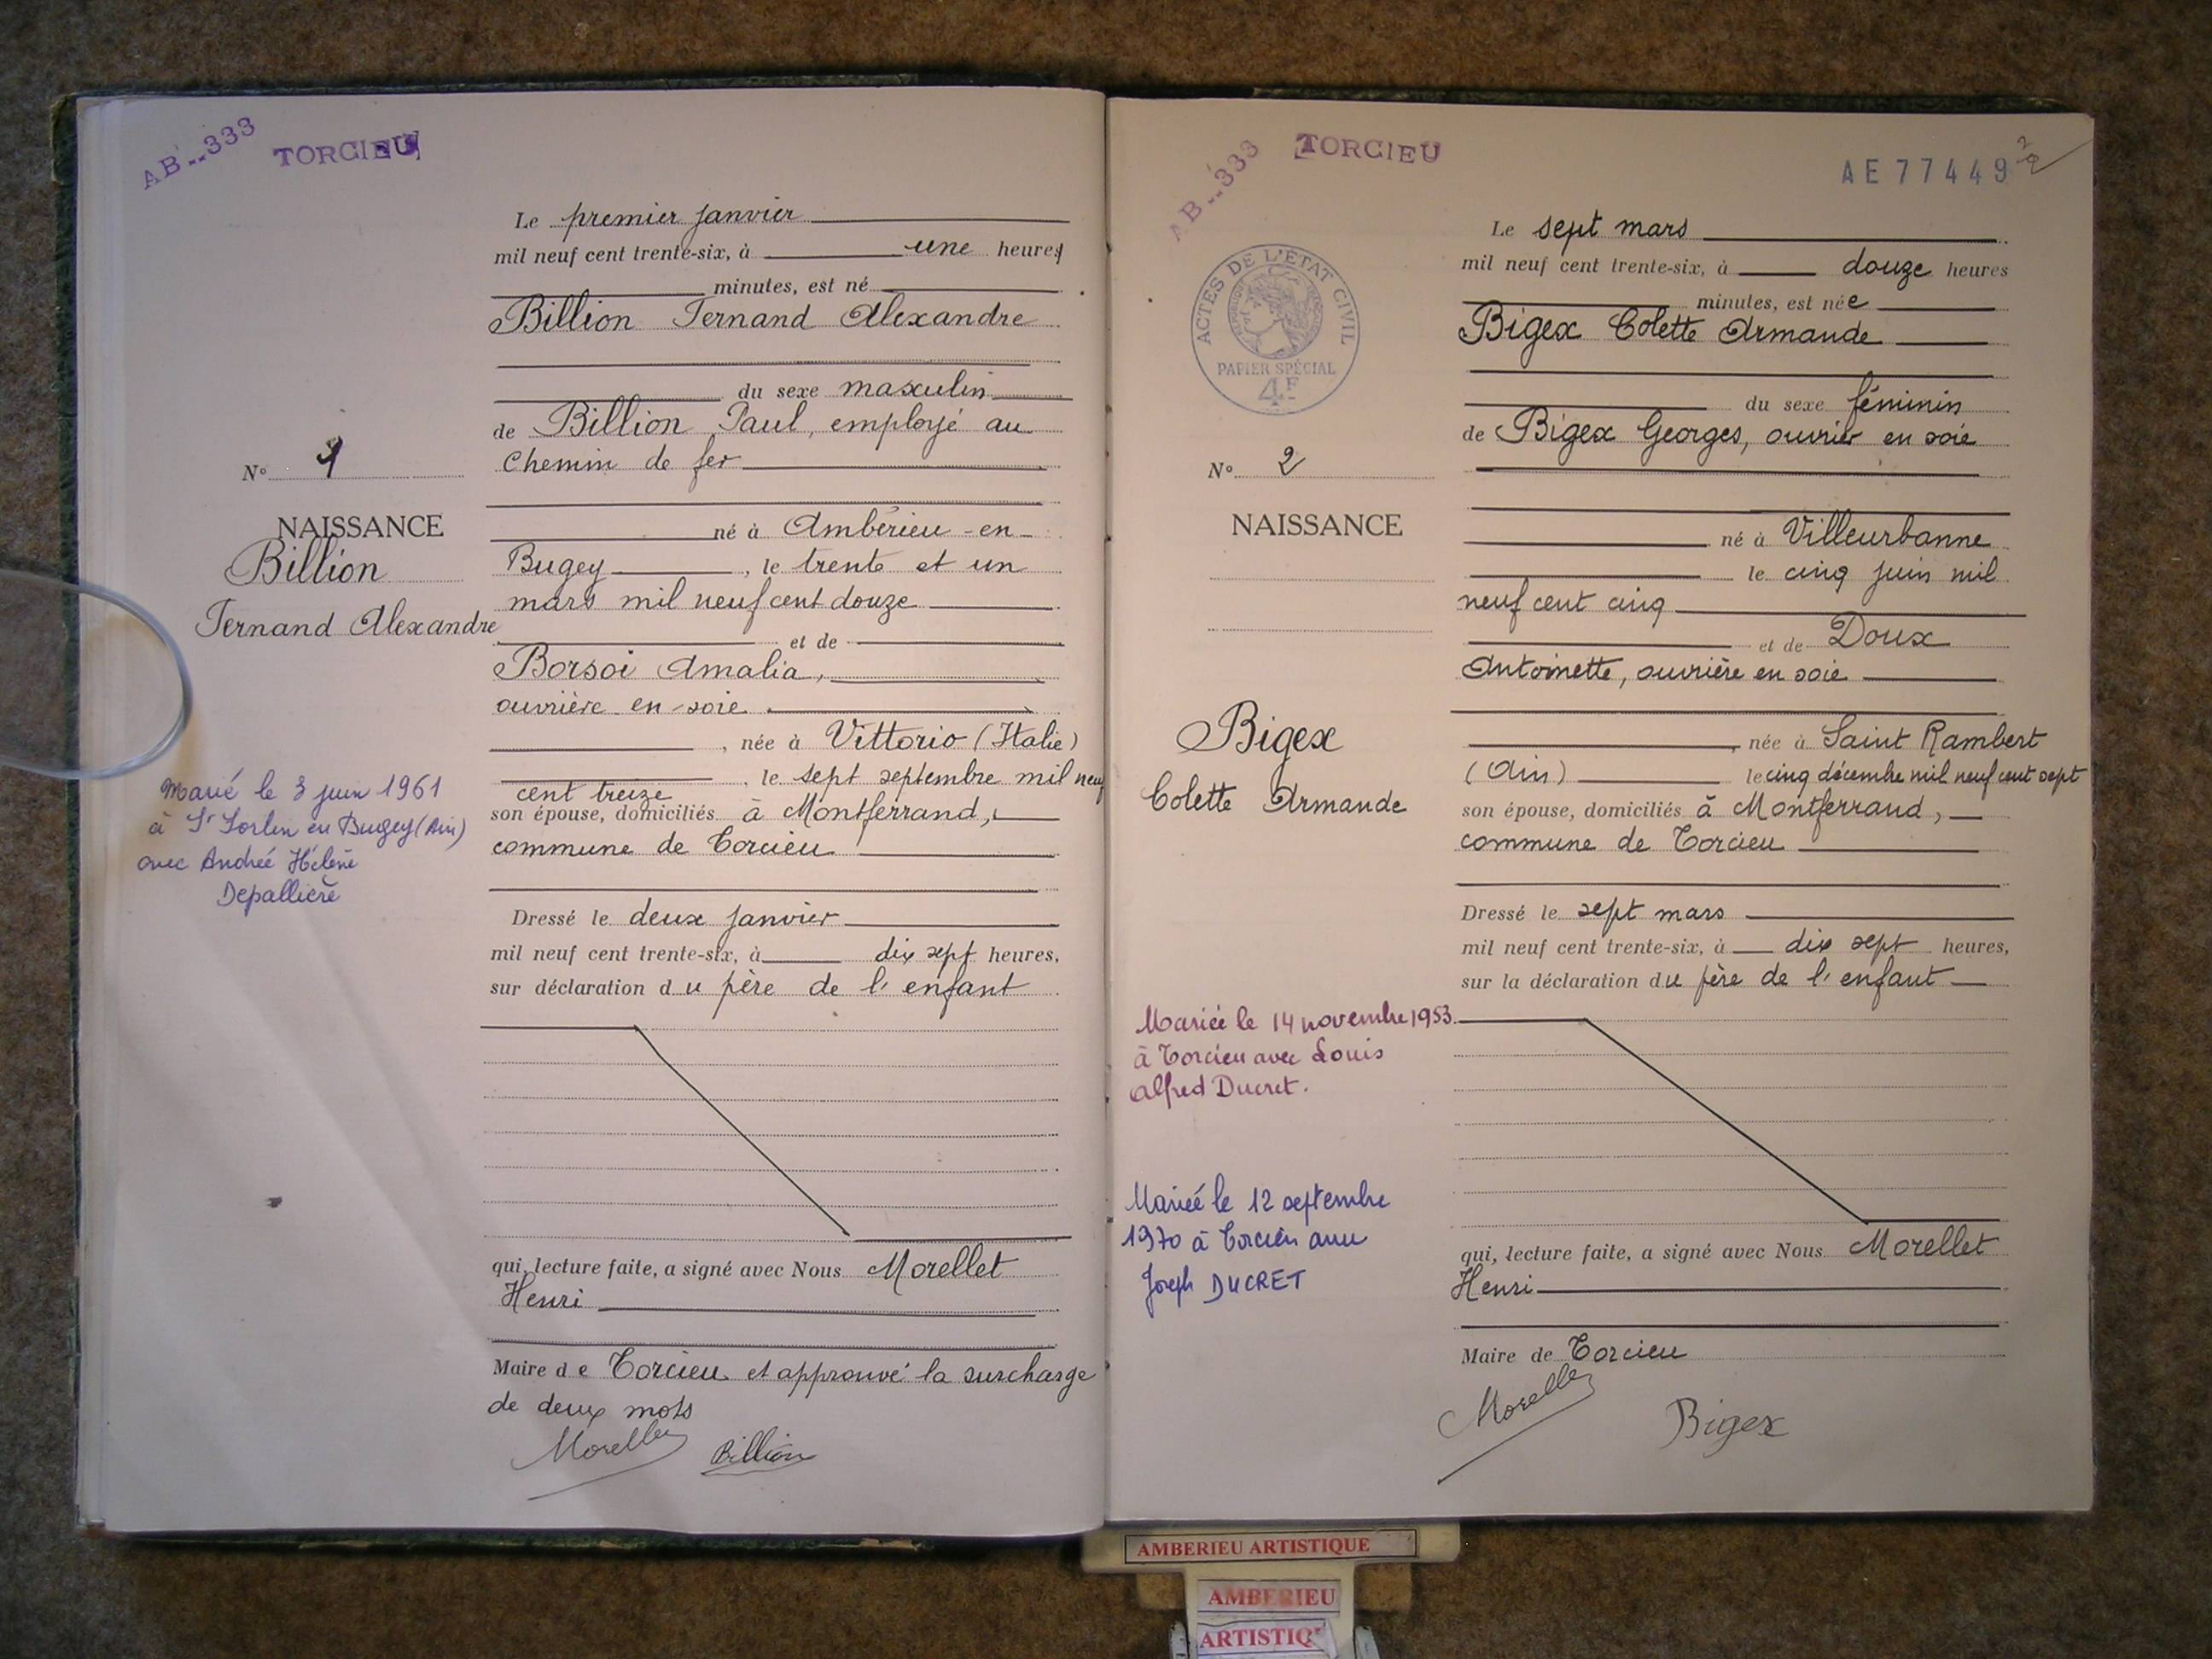 AB--333
TORCIEU
Le premier janvier
mil neuf cent trente-six, à une heures
minutes, est né
Billion Fernand Alexandre
du sexe masculin
de Billion Paul, employé au
Chemin de fer
N° 1
NAISSANCE
Billion
Fernand Alexandre
né à Ambérieu-en-
Bugey, le trente et un
mars mil neuf cent douze
et de
Borsoi Amalia,
ouvrière en soie
, née à Vittorio (Italie)
, le sept septembre mil neuf
cent treize
son épouse, domiciliés à Montferrand,
commune de Torcieu
Marié le 3 juin 1961
à St Sorlin en Bugey (Ain)
avec Andrée Hélène
Depallière
Dressé le deux janvier
mil neuf cent trente-six, à dix sept heures,
sur déclaration du père de l'enfant
qui, lecture faite, a signé avec Nous Morellet
Henri
Maire de Torcieu et approuvé la surcharge
de deux mots
Morellet Billion
AB--333
TORCIEU
AE77449
2
ACTES DE L'ETAT CIVIL
PAPIER SPÉCIAL
4F
Le sept mars
mil neuf cent trente-six, à douze heures
minutes, est née
Bigex Colette Armande
du sexe féminin
de Bigex Georges, ouvrier en soie
N° 2
NAISSANCE
Bigex
Colette Armande
né à Villeurbanne
le cinq juin mil
neuf cent cinq
et de Doux
Antoinette, ouvrière en soie
, née à Saint Rambert
(Ain) le cinq décembre mil neuf cent sept
son épouse, domiciliés à Montferrand,
commune de Torcieu
Dressé le sept mars
mil neuf cent trente-six, à dix sept heures,
sur la déclaration du père de l'enfant
Mariée le 14 novembre 1953
à Torcieu avec Louis
Alfred Ducret.
Mariée le 12 septembre
1970 à Torcieu avec
Joseph DUCRET
qui, lecture faite, a signé avec Nous Morellet
Henri
Maire de Torcieu
Morellet
Bigex
AMBERIEU ARTISTIQUE
AMBERIEU
ARTISTIQ